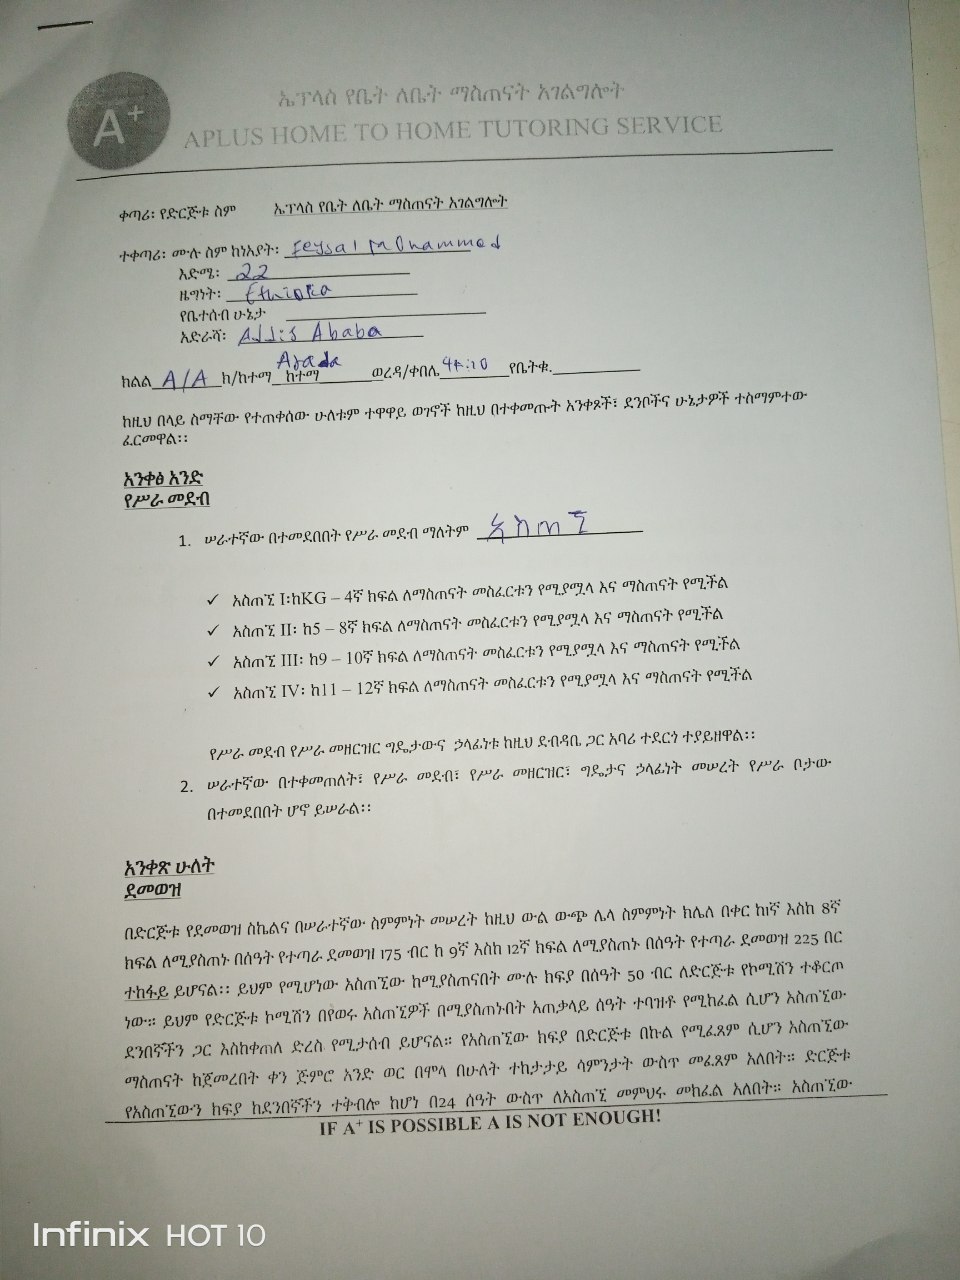 A+
ኤፕላስ የቤት ለቤት ማስጠናት አገልግሎት
APLUS HOME TO HOME TUTORING SERVICE
ቀጣሪ፡ የድርጅቱ ስም ኤፕላስ የቤት ለቤት ማስጠናት አገልግሎት
ተቀጣሪ፡ ሙሉ ስም ከነአያት፡ Feysal Mohammed
እድሜ፡ 22
ዜግነት፡ Ethiopia
የቤተሰብ ሁኔታ
አድራሻ፡ Addis Ababa
ክልል A/A ክ/ከተማ Arada ከተማ ወረዳ/ቀበሌ የቤትቁ.
ከዚህ በላይ ስማቸው የተጠቀሰው ሁለቱም ተዋዋይ ወገኖች ከዚህ በተቀመጡት አንቀጾች፣ ደንቦችና ሁኔታዎች ተስማምተው
ፈርመዋል፡፡
አንቀፅ አንድ
የሥራ መደብ
1. ሠራተኛው በተመደበበት የሥራ መደብ ማለትም አስጠኚ
✓ አስጠኚ I፡ከKG – 4ኛ ክፍል ለማስጠናት መስፈርቱን የሚያሟላ እና ማስጠናት የሚችል
✓ አስጠኚ II፡ ከ5 – 8ኛ ክፍል ለማስጠናት መስፈርቱን የሚያሟላ እና ማስጠናት የሚችል
✓ አስጠኚ III፡ ከ9 – 10ኛ ክፍል ለማስጠናት መስፈርቱን የሚያሟላ እና ማስጠናት የሚችል
✓ አስጠኚ IV፡ ከ11 – 12ኛ ክፍል ለማስጠናት መስፈርቱን የሚያሟላ እና ማስጠናት የሚችል
የሥራ መደብ የሥራ መዘርዝር ግዴታውና ኃላፊነቱ ከዚህ ደብዳቤ ጋር አባሪ ተደርጎ ተያይዘዋል፡፡
2. ሠራተኛው በተቀመጠለት፣ የሥራ መደብ፣ የሥራ መዘርዝር፣ ግዴታና ኃላፊነት መሠረት የሥራ ቦታው
በተመደበበት ሆኖ ይሠራል፡፡
አንቀጽ ሁለት
ደመወዝ
በድርጅቱ የደመወዝ ስኬልና በሠራተኛው ስምምነት መሠረት ከዚህ ውል ውጭ ሌላ ስምምነት ከሌለ በቀር ከ1ኛ እስከ 8ኛ
ክፍል ለሚያስጠኑ በሰዓት የተጣራ ደመወዝ 175 ብር ከ 9ኛ እስከ 12ኛ ክፍል ለሚያስጠኑ በሰዓት የተጣራ ደመወዝ 225 በር
ተከፋይ ይሆናል፡፡ ይህም የሚሆነው አስጠኚው ከሚያስጠናበት ሙሉ ክፍያ በሰዓት 50 ብር ለድርጅቱ የኮሚሽን ተቆርጦ
ነው። ይህም የድርጅቱ ኮሚሽን በየወሩ አስጠኚዎች በሚያስጠኑበት አጠቃላይ ሰዓት ተባዝቶ የሚከፈል ሲሆን አስጠኚው
ደንበኛችን ጋር እስከቀጠለ ድረስ የሚታሰብ ይሆናል። የአስጠኚው ክፍያ በድርጅቱ በኩል የሚፈጸም ሲሆን አስጠኚው
ማስጠናት ከጀመረበት ቀን ጅምሮ አንድ ወር በሞላ በሁለት ተከታታይ ሳምንታት ውስጥ መፈጸም አለበት። ድርጅቱ
የአስጠኚውን ክፍያ ከደንበኛችን ተቅብሎ ከሆነ በ24 ሰዓት ውስጥ ለአስጠኚ መምህሩ መከፈል አለበት። አስጠኚው
IF A+ IS POSSIBLE A IS NOT ENOUGH!
Infinix HOT 10